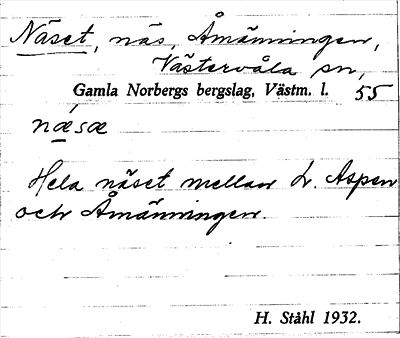 Näset, näs, Åmänningen,
Västervåla sn,
Gamla Norbergs bergslag, Västm. l. 55
nǽsæ
Hela näset mellan L. Aspen
och Åmänningen.
H. Ståhl 1932.